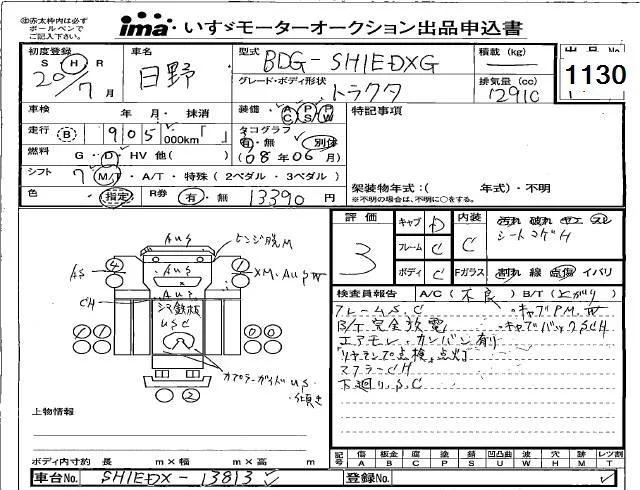 ㊟赤太枠内は必ず
ボールペンで
ご記入下さい。
ima いすゞモーターオークション出品申込書
初度登録 S H R
20/7 月
車名
日野
型式
BDG-SH1EDXG
グレード・ボディ形状
トラクタ
積載 (kg)
排気量 (cc)
12910
出品No.
1130
車検 年 月・抹消
走行 B 905,000km「 」
燃料 G・D・HV 他( )
シフト 7 M/T・A/T・特殊(2ペダル・3ペダル)
色 指定 R券 有・無 13390円
装備 A/C P/S P/W
タコグラフ
有・無 別体
(08年06月)
特記事項
架装物年式:( 年式)・不明
※不明の場合は、不明に○をする。
評価
3
キャブ D
フレーム C
ボディ C
内装 C
Fガラス
汚れ 破れ コゲ スレ
シートコゲH
割れ 線 点傷 イバリ
検査員報告 A/C(不良) B/T(上がり)
フレームS.C ・キャブP.M.W
B/T完全放電 ・キャブバックSCH
エアモレ・カンバン有り
リヤランプ点検、点灯
マフラーCH
下廻り.S.C
ヒンジ脱M
XM・AUSW
AUS
AUS
AUS
AS
CH
シマ鉄板
USC
カプラーガイドUS・傾き
4 1
1 0 0
2
上物情報
ボディ内寸約 長 m×幅 m×高 m
記号 傷 板金 腐 塗 錆 凹凸曲 波 穴 跡 レツ割
A B C P S U W H M T
車台No. SH1EDX-13813
登録No.